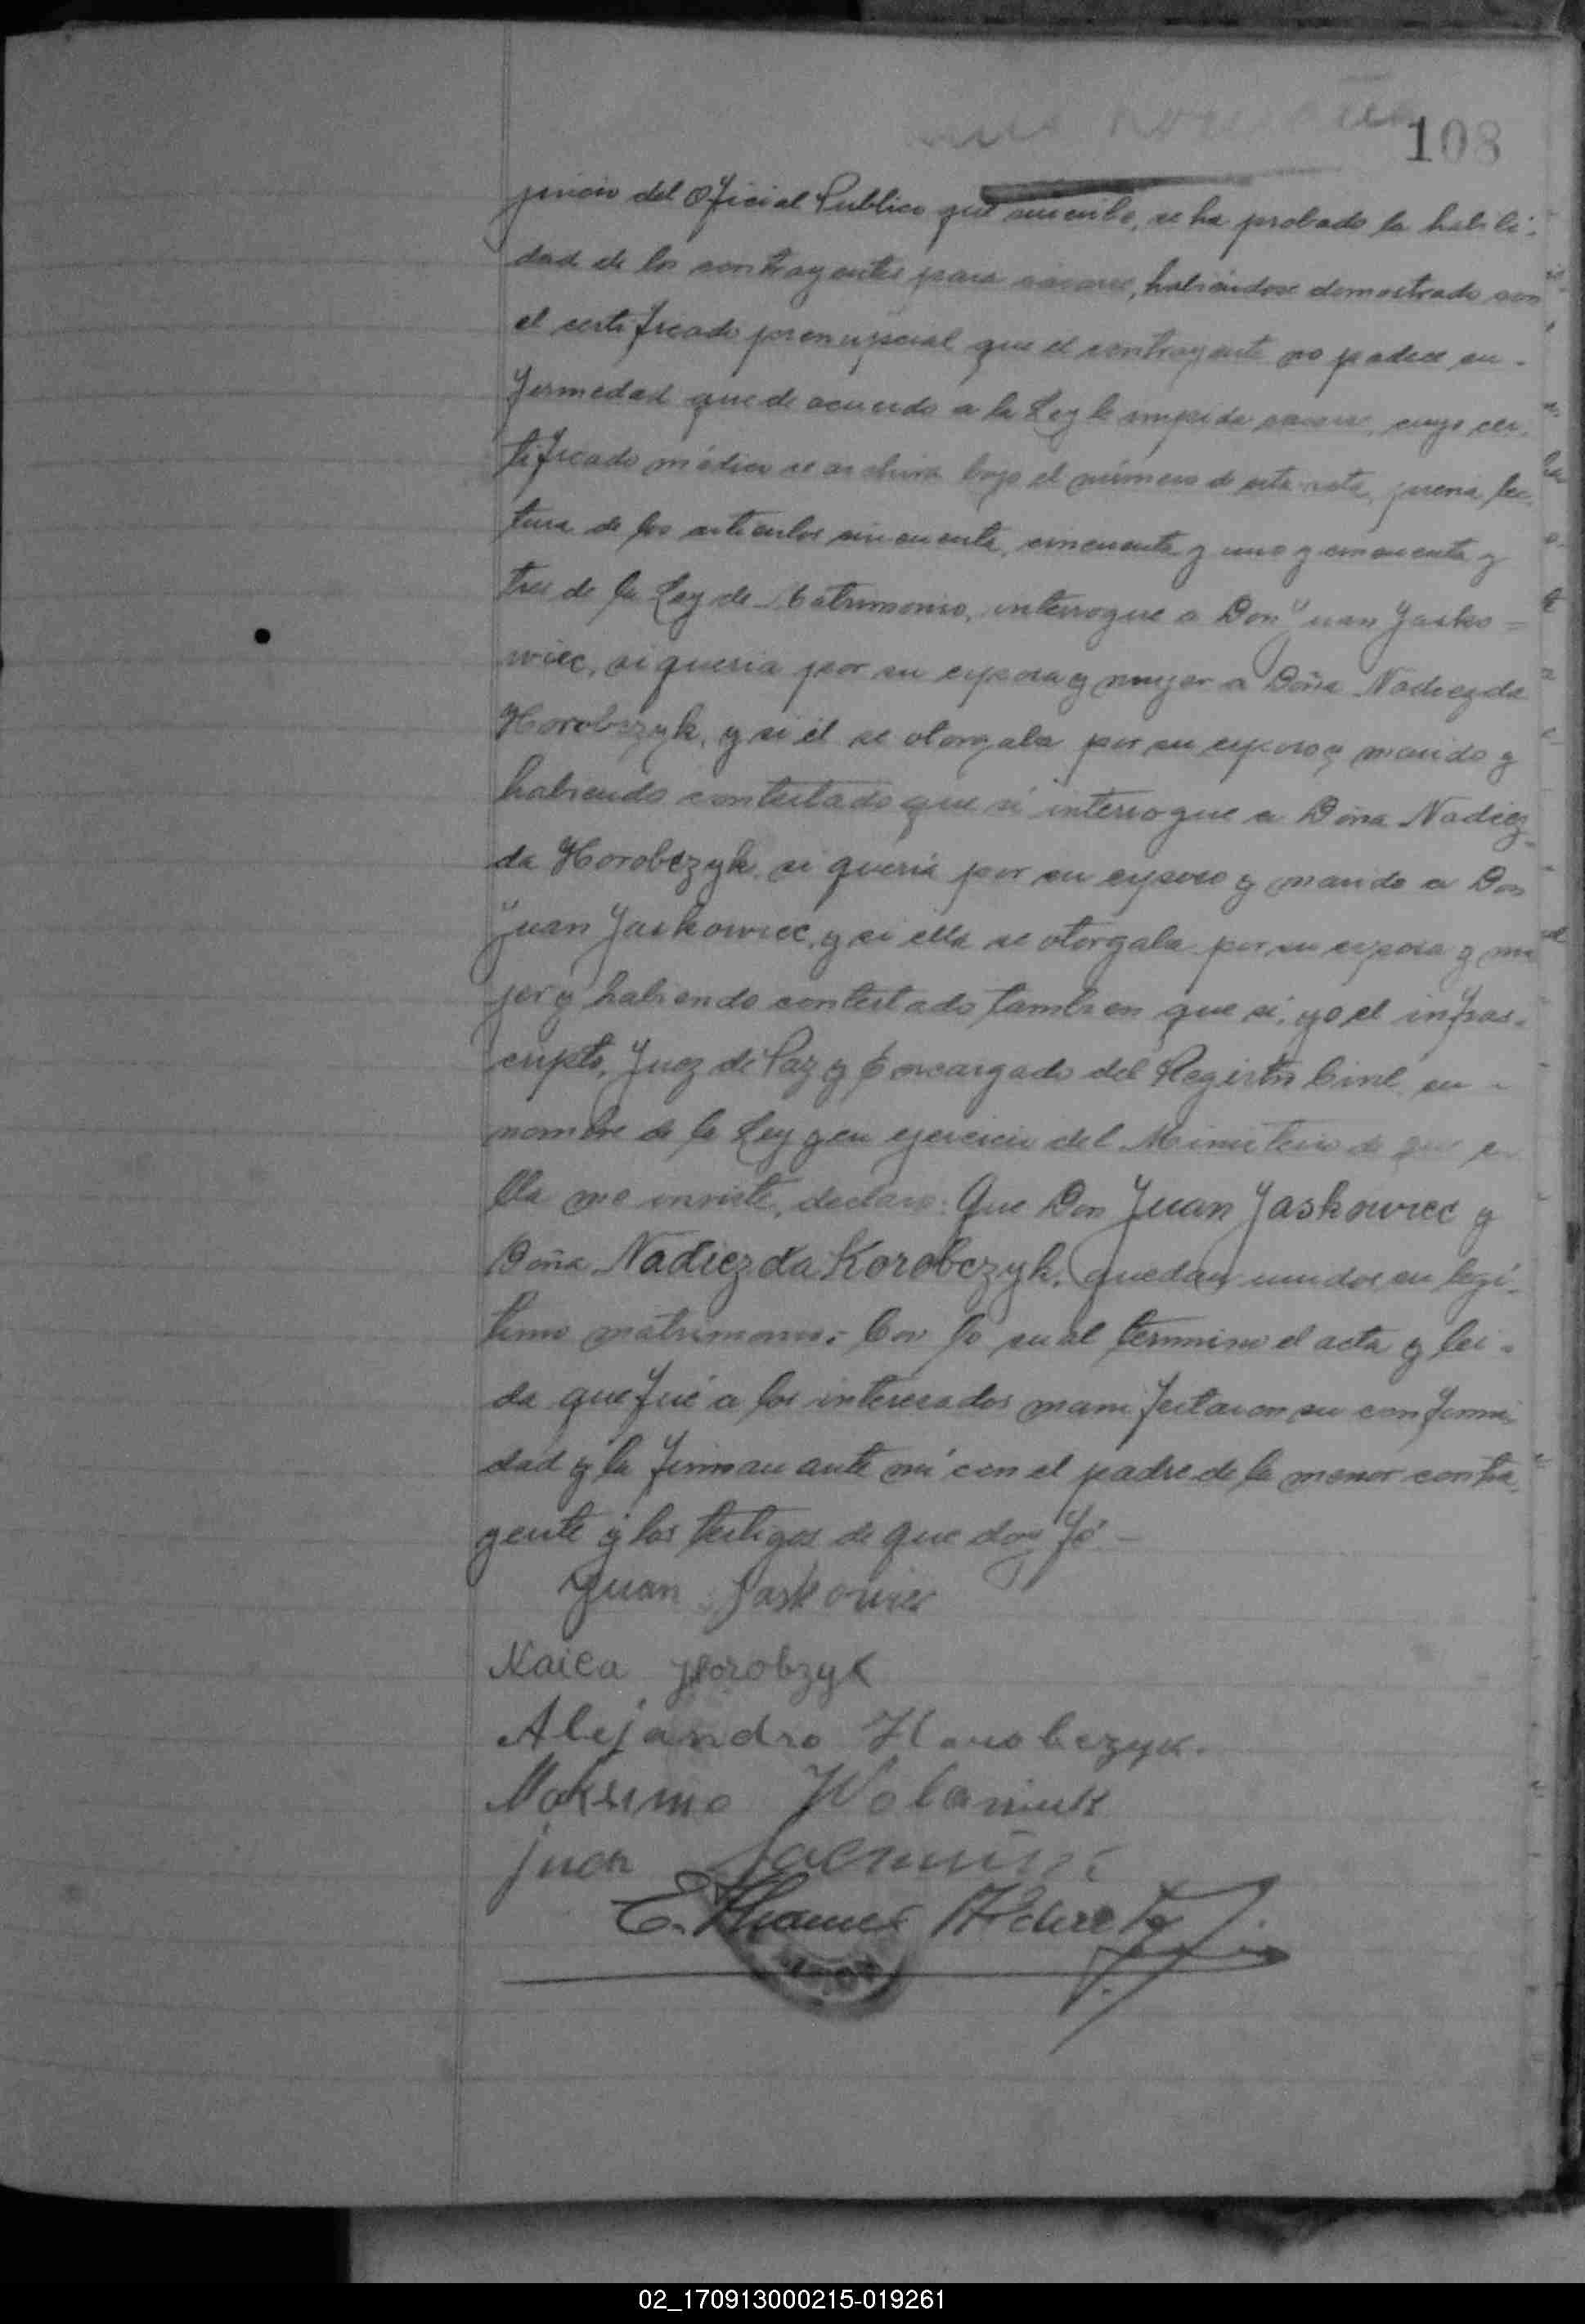 108
juicio del Oficial Publico que suscribe, se ha probado la habili-
dad de los contrayentes para casarse, habiéndose demostrado con
el certificado prenupcial que el contrayente no padece en-
fermedad que de acuerdo a la Ley le impida casarse, cuyo cer-
tificado médico se archiva bajo el número de esta acta, previa lec-
tura de los articulos cincuenta, cincuenta y uno y cincuenta y
tres de la Ley de Matrimonio, interrogue a Don Juan Jasko=
wiec, si queria por su esposa y mujer a Doña Nadiezda
Horobczyk, y si él se otorgaba por su esposo y marido y
habiendo contestado que si interrogue a Doña Nadiez-
da Horobczyk, si queria por su esposo y marido a Don
Juan Jaskowiec, y si ella se otorgaba por su esposa y mu
jer y habiendo contestado tambien que si, yo el infras-
cripto, Juez de Paz y Encargado del Registro Civil, en
nombre de la Ley y en ejercicio del Ministerio de que e
lla me inviste, declaro: Que Don Juan Jaskowiec y
Doña Nadiezda Korobczyk, quedan unidos en legi-
timo matrimonio.- Con lo cual termino el acta y lei-
da que fué a los interesados manifestaron su conformi-
dad y la firman ante mi con el padre de la menor contra-
yente y los testigos de que doy fé.-
Juan Jaskowiec
Naica Horobzyk
Alejandro Horobczyk.
Maksimo Wolaniuk
Juan
E.
02_170913000215-019261